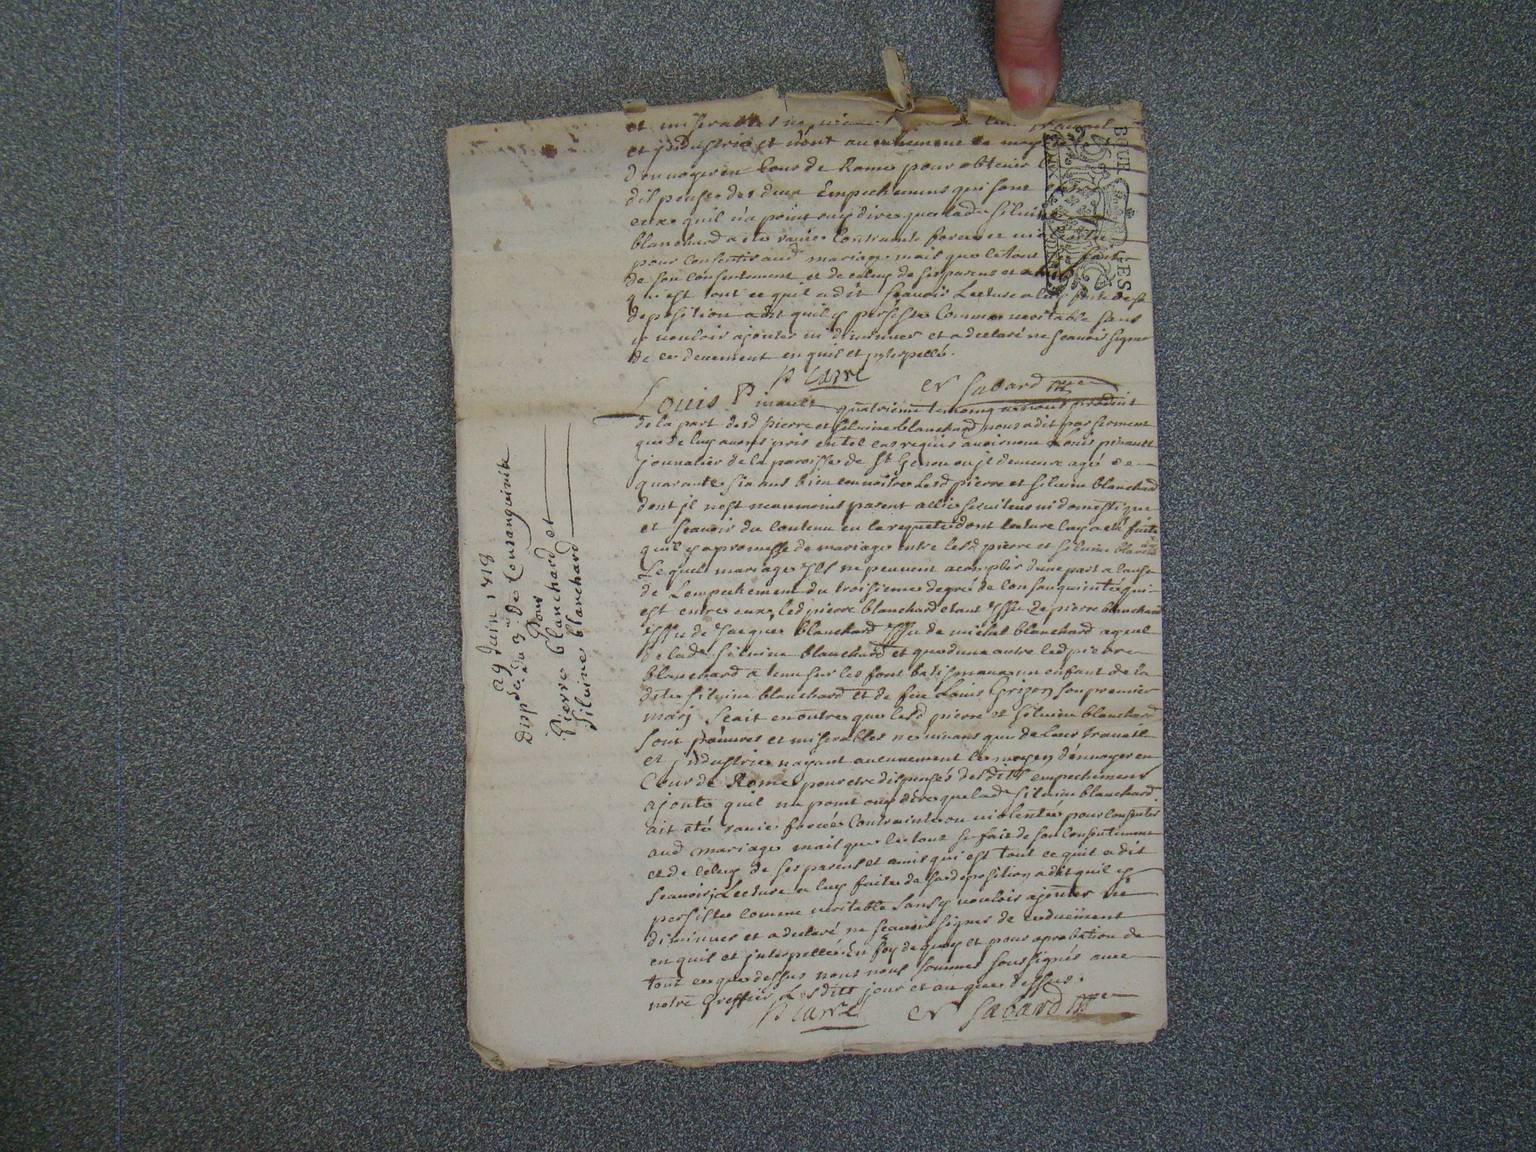 et miserables ne vivant
et jndustrie et n'ont aucunement le moy
d'envoyer en Cour de Rome pour obtenir
dispense des deux Empechemens qui sont
eux quil n'a point ouy dire que lade Silvine
blanchard a été ravie Contrainte forcée et
pour consentir aud mariage mais que le tout se fait
de son consentement et de celuy de ses parens et amis
qui est tout ce quil a dit sçavoir Lecture a luy faite de sa
deposition a dit quil y persiste Comme veritable sans
y vouloir ajouter ni diminuer et a declaré ne sçavoir signer
de ce deuement enquil et jnterpellé.
P Carré
Sabard
BOUR GES
Louis Pinault quatrieme temoing a nous produit
de la part desd pierre et Silvine blanchard nous a dit par serment
que de luy avons pris en tel cas requis avoir nom Louis pinault
journalier de la paroisse de St Genou ou jl demeure agé de
quarante six ans bien connoitre Lesd pierre et Silvine blanchard
dont jl nest neanmoins parent allié serviteur ni domestique
et sçavoir du contenu en la requete dont lecture luy a été faite
quil y a promesse de mariage entre lesd pierre et Silvine blanchard
Lequel mariage Jls ne peuvent acomplir d'une part a cause
de Lempechement du troisieme degré de consanguinité qui
est entre eux, led pierre blanchard etant Jssu de pierre blanchard
Jssu de Jacques blanchard Jssu de michel blanchard ayeul
de lade Silvine blanchard et que d'une autre led pierre
blanchard a tenu sur les font batismaux un enfant de la
dite Silvine blanchard et de feu Louis Grizon son premier
mari Scait en outre que lesd pierre et Silvine blanchard
sont pauvres et miserables ne vivans que de Leur travail
et jndustrie nayant aucunement le moyen d'envoyer en
Cour de Rome pour etre dispensés desdits empechemens
ajoute quil na point ouy dire que lade Silvine blanchard
ait eté ravie forcée Contrainte ou violentée pour consentir
aud mariage mais que le tout se fait de son consentement
et de celuy de ses parens et amis qui est tout ce quil a dit
sçavoir, Lecture a luy faite de sa deposition a dit quil y
persiste comme veritable sans y vouloir ajouter ni
diminuer et a declaré ne sçavoir signer de ce deuement
enquil et jnterpellé. En foy de quoy et pour aprobation de
tout ce que dessus nous nous sommes soussignés avec
notre Greffier Lesdits jour et an que dessus.
P Carré
Sabard
29 Juin 1718
Dispse du 3e de Consanguinité
Pour
Pierre blanchard et
Silvine blanchard